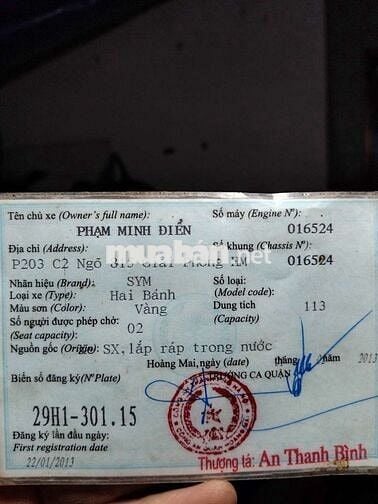 Tên chủ xe (Owner's full name):
PHẠM MINH ĐIỂN
Số máy (Engine Nº):
016524
Địa chỉ (Address):
P203 C2 Ngõ 815 Giải Phóng HM
Số khung (Chassis Nº)
016524
Nhãn hiệu (Brand):
SYM
Số loại:
(Model code):
Loại xe (Type):
Hai Bánh
Màu sơn (Color):
Vàng
Dung tích
(Capacity)
113
Số người được phép chở:
(Seat capacity):
02
Nguồn gốc (Origin):
SX, lắp ráp trong nước
Hoàng Mai, ngày
tháng
năm
2013
Biển số đăng ký(Nº Plate)
TRƯỞNG CA QUẬN
29H1-301.15
Đăng ký lần đầu ngày:
First registration date
22/01/2013
Thượng tá: An Thanh Bình
muaban.net